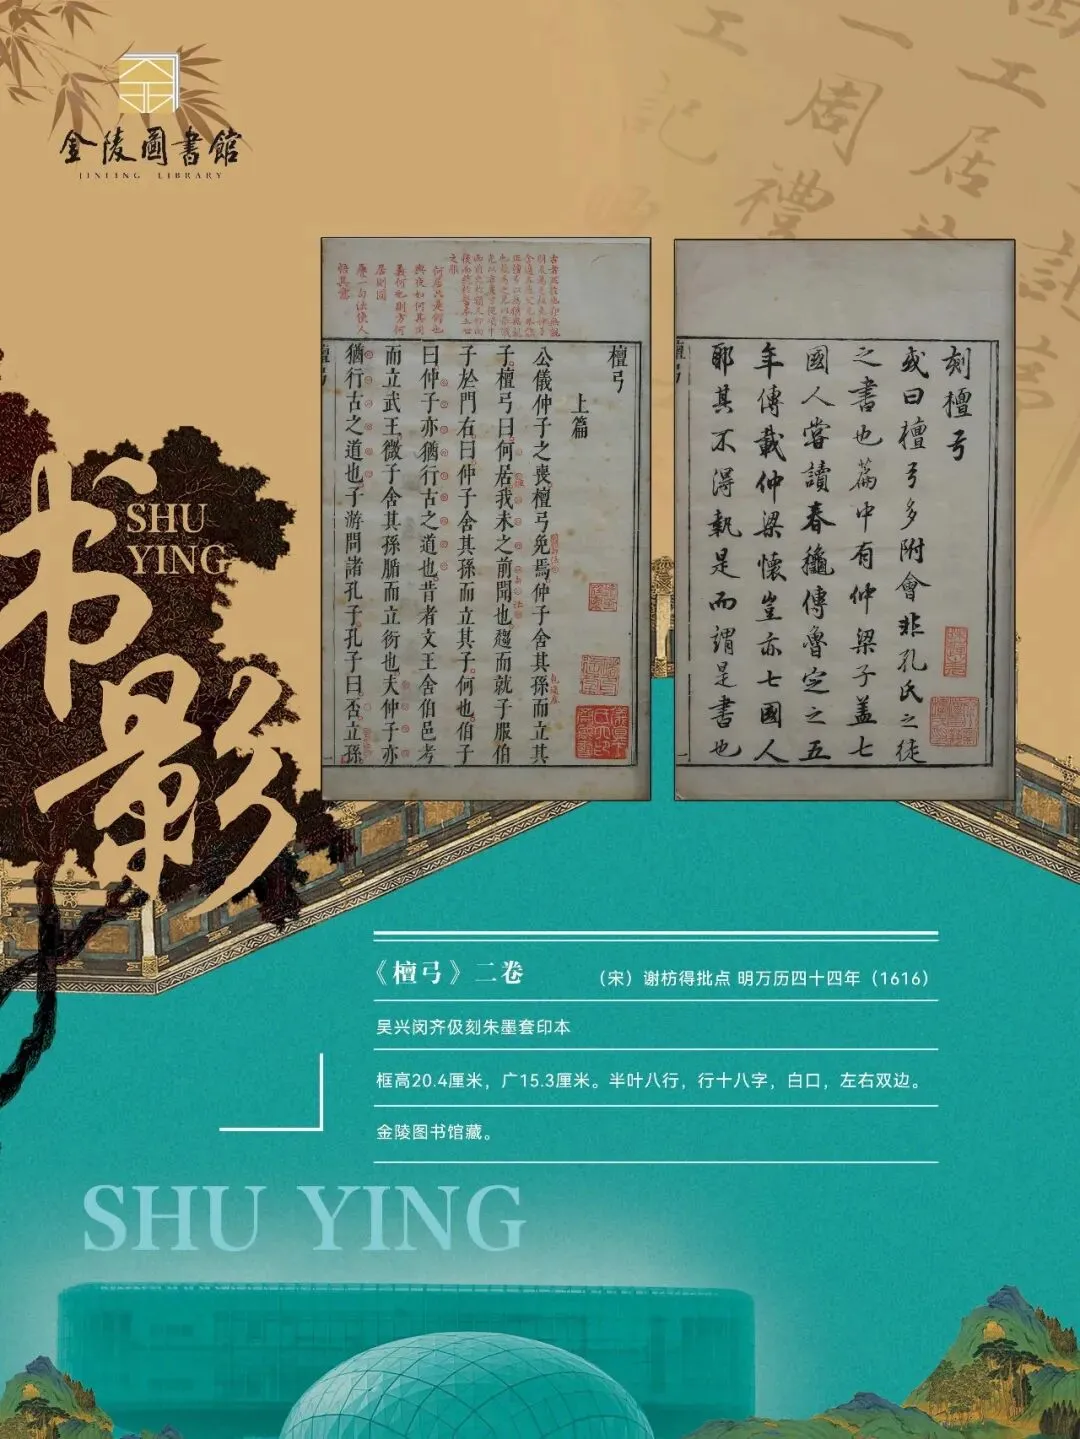 金陵圖書館
JINLING LIBRARY
书影
SHU
YING
檀弓
上篇
公儀仲子之喪檀弓免焉仲子舍其孫而立其
子檀弓曰何居我未之前聞也趨而就子服伯
子於門右曰仲子舍其孫而立其子何也伯子
曰仲子亦猶行古之道也昔者文王舍伯邑考
而立武王微子舍其孫腯而立衍也夫仲子亦
猶行古之道也子游問諸孔子孔子曰否立孫
刻檀弓
或曰檀弓多附會非孔氏之徒
之書也篇中有仲梁子盖七
國人嘗讀春秋傳魯定之五
年傳載仲梁懷豈亦七國人
耶其不得執是而謂是書也
《檀弓》二卷
（宋）谢枋得批点 明万历四十四年（1616）
吴兴闵齐伋刻朱墨套印本
框高20.4厘米，广15.3厘米。半叶八行，行十八字，白口，左右双边。
金陵图书馆藏。
SHU YING